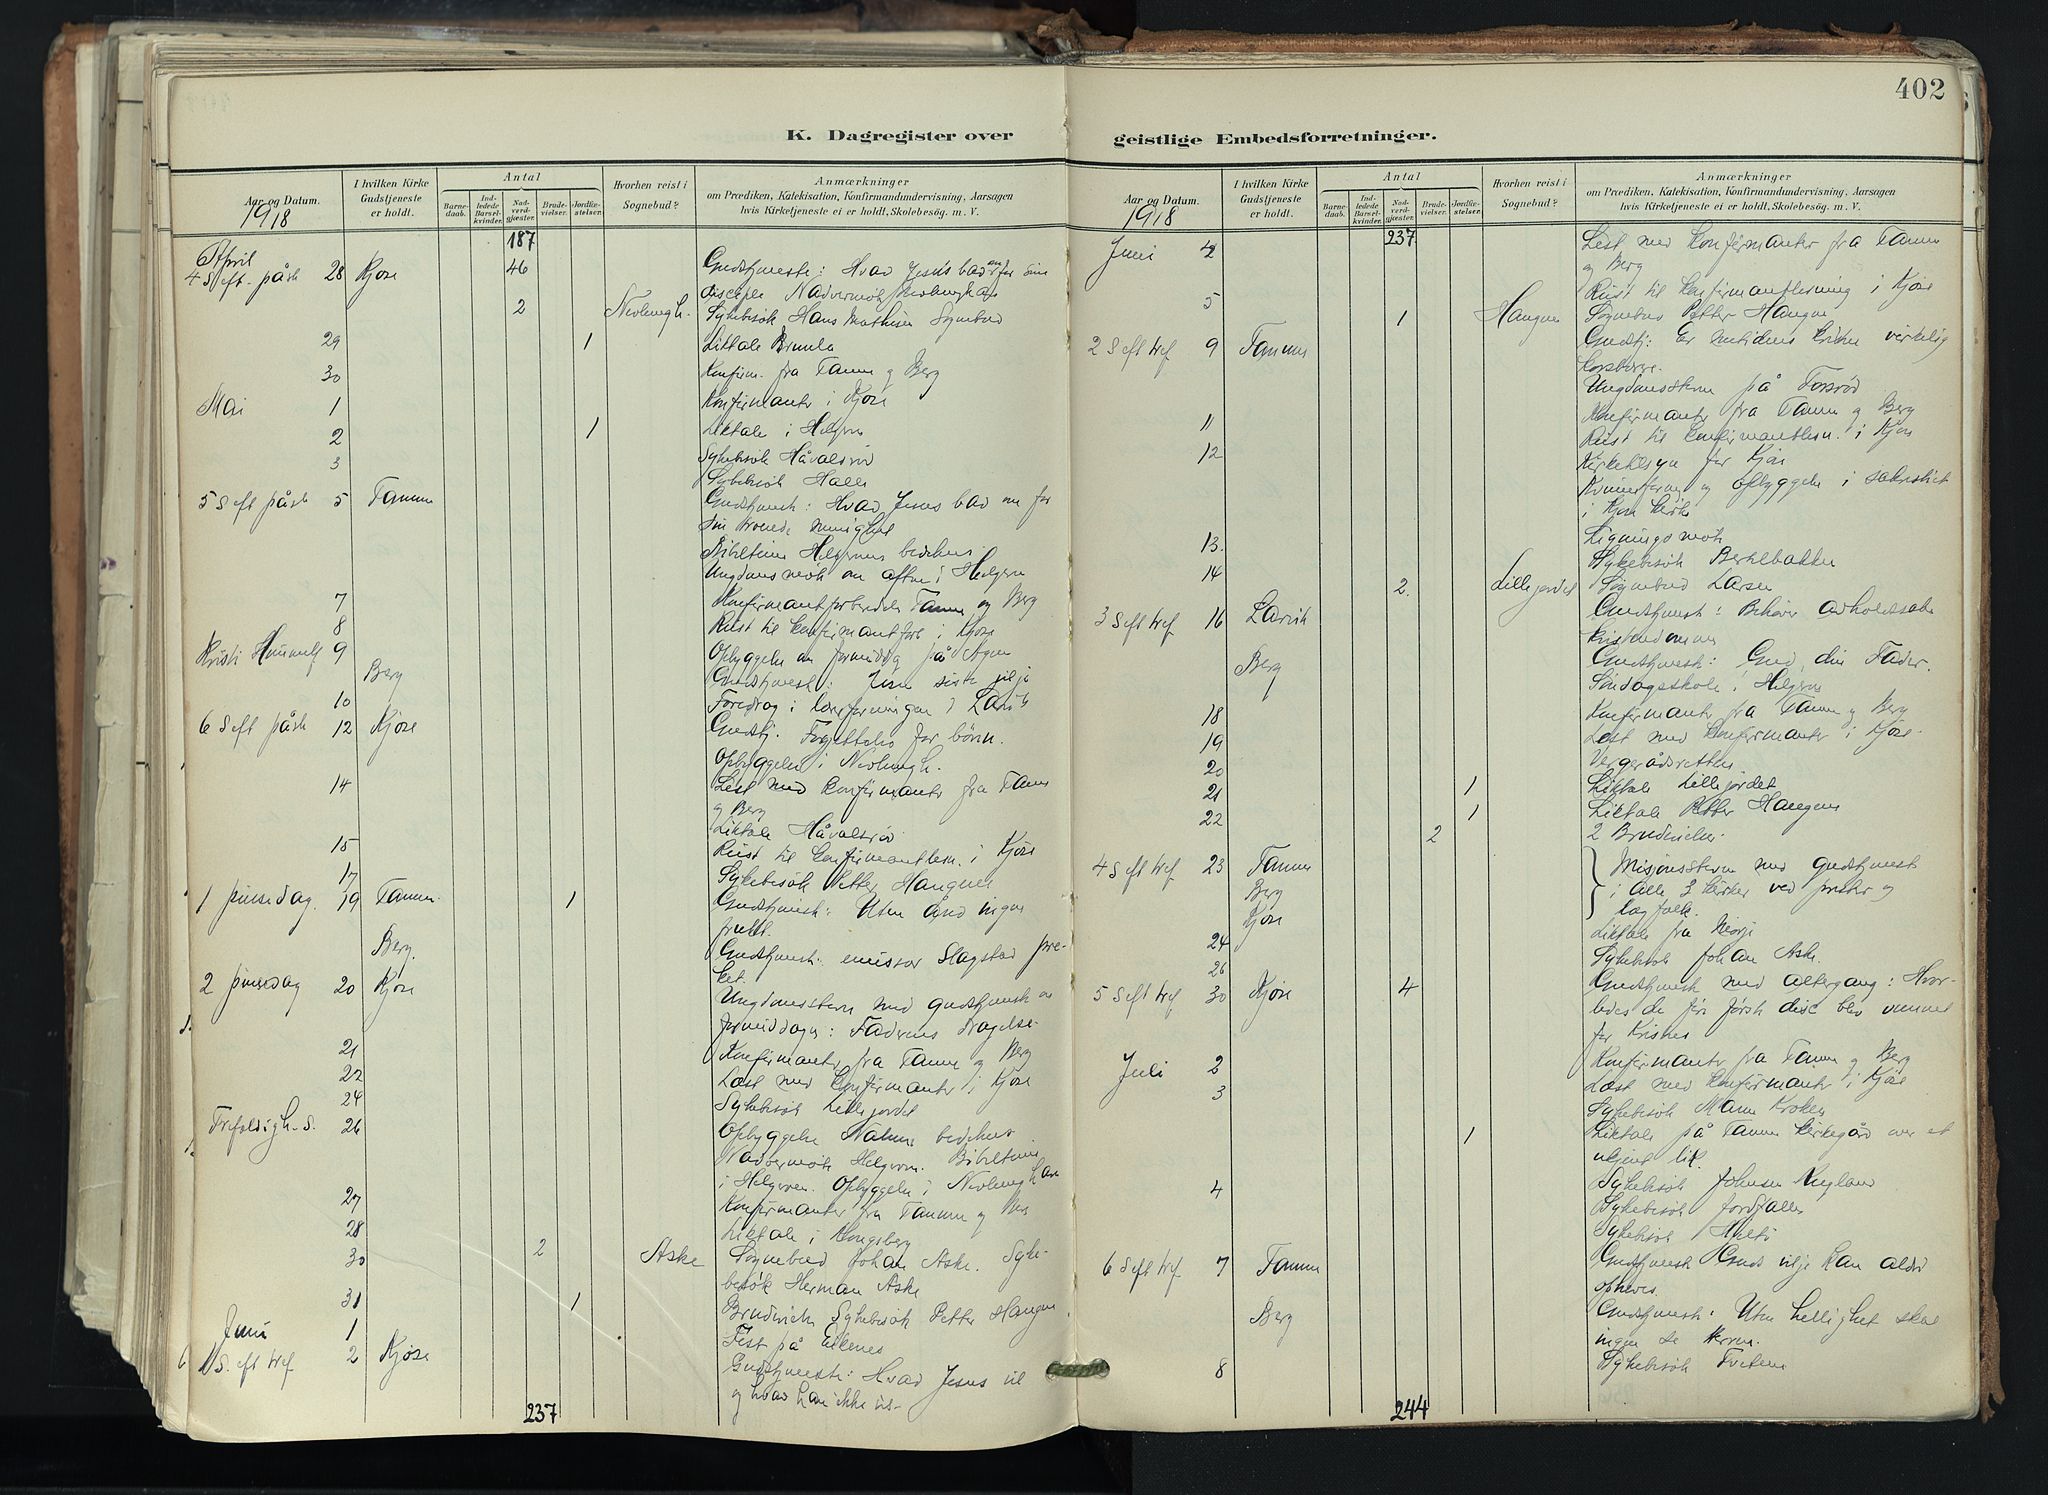 402
K. Dagregister over
Aar og Datum.
1918
I hvilken Kirke Gudstjeneste er holdt.
Antal
Barnedaab.
Indledede Barselkvinder.
Nadverdgjester.
Brudevielser.
Jordfæstelser.
Hvorhen reist i Sognebud?
Anmærkninger
om Prædiken, Katekisation, Konfirmandundervisning, Aarsagen
hvis Kirketjeneste ei er holdt, Skolebesög. m. V.
187
April
4 S eft. påsk 28 Kjose 46 Gudstjeneste: Hvad Jesus bad om for sine
disciple Nadvermøte
2 Nevlungh. Sykebesök Hans Mathisen Sognebud
29 1 Liktale Brunla
30 Konfirm. fra Tanum og Berg
Mai 1 Konfirmanter i Kjose
2 1 Liktale i Helgeroa
3 Sykebesök Håvalsrød
Sykebesök Halle
5 S eft påsk 5 Tanum Gudstjenest: Hvad Jesus bad om for
sin troende menighet
Bibeltime Helgeroa bedehus
Ungdomsmöte om aften i Helgeroa
7 Konfirmantforberedels Tanum og Berg
8 Reist til konfirmantforb i Kjose
Kristi Himmelf 9 Opbyggelse om formiddag på
Berg Gudstjenest: Jesu siste vilje
10 Foredrag i lærerforeningen i Larvik
6 S eft påsk 12 Kjose Gudstj. for börn.
Opbyggelse i Nevlungh.
14 Læst med konfirmanter fra Tanum
og Berg
Liktale Håvalsröd
15 Reist til konfirmantlesn. i Kjose
17 Sykebesök Petter Haugene
1 pinsedag. 19 Tanum. 1 Gudstjenest: Uten ånd ingen
frukt.
Berg. Gudstjenest: emissær Slagstad præ-
ket.
2 pinsedag 20 Kjose Ungdomsstevne med gudstjenest om
formiddagen: Faderens dragelse
21 Konfirmanter fra Tanum og Berg
22 Læst med konfirmanter i Kjose
24 Sykebesök Lillejordet
Trefoldigh. S. 26 Opbyggelse Nalum bedehus
Nadvermøte Helgeroa. Bibeltime
i Helgeroa. Opbyggelse i Nevlunghavn
27 Konfirmanter fra Tanum og Berg
28 Liktale i Kongsberg
30 2 Aske Sognebud Johan Aske. Syke-
besök Herman Aske
31 1 Brudevielse Sykebesök Petter Haugene
Juni 1 Fest på Eikenes
1 S. eft tref 2 Kjose Gudstjeneste: Hvad Jesus vil
og hvad han ikke vil
237
geistlige Embedsforretninger.
Aar og Datum.
1918
I hvilken Kirke Gudstjeneste er holdt.
Antal
Barnedaab.
Indledede Barselkvinder.
Nadverdgjester.
Brudevielser.
Jordfæstelser.
Hvorhen reist i Sognebud?
Anmærkninger
om Prædiken, Katekisation, Konfirmandundervisning, Aarsagen
hvis Kirketjeneste ei er holdt, Skolebesög. m. V.
237
Juni 4 Lest med konfirmanter fra Tanum
og Berg
5 Reist til konfirmantlesning i Kjose
1 Haugene Sognebud Petter Haugene
2 S eft tref 9 Tanum Gudstj: Er nutidens kirke virkelig
korsbærer.
Ungdomsstevne på Torsrød
11 Konfirmanter fra Tanum og Berg
12 Reist til konfirmantlesn. i Kjose
Kirketilsyn for Kjose
Kvinneforening og opbyggelse i sakristiet
i Kjose kirke
13. Ligningsmøte
14 Sykebesök
2. Lillejordet Sognebud Larsen
3 S eft tref 16 Larvik Gudstjenest: Behöver avholdssaken
kristendommen
Berg Gudstjenest: Gud, din Fader.
Söndagsskole i Helgeroa
18 Konfirmanter fra Tanum og Berg
19 Læst med konfirmanter i Kjose.
20 Vergerådsretten
21 1 Liktale Lillejordet
22 1 Liktale Petter Haugene
2 2 Brudevielser.
4 S eft tref 23 Tanum Misjonsstevne med gudstjenest
Berg i alle 3 kirker ved prester og
Kjose lægfolk.
24 Liktale fra
26 Sykebesök Johan Aske.
5 S eft tref 30 Kjose 4 Gudstjenest med altergang: Hvor-
ledes de första disc blev vunnet
for Kristus
Juli 2 Konfirmanter fra Tanum og Berg
3 Læst med konfirmanter i Kjose
Sykebesök Kroken
1 Liktale på Tanum kirkegård over et
ukjent lik.
4 Sykebesök Johnsen
Sykebesök Jordfallen
Sykebesök
6 S eft tref 7 Tanum Gudstjenest Guds vilje kan aldri
opheves.
Berg Gudstjenest: Uten hellighet skal
ingen se Herren.
8 Sykebesök Tvetene
244